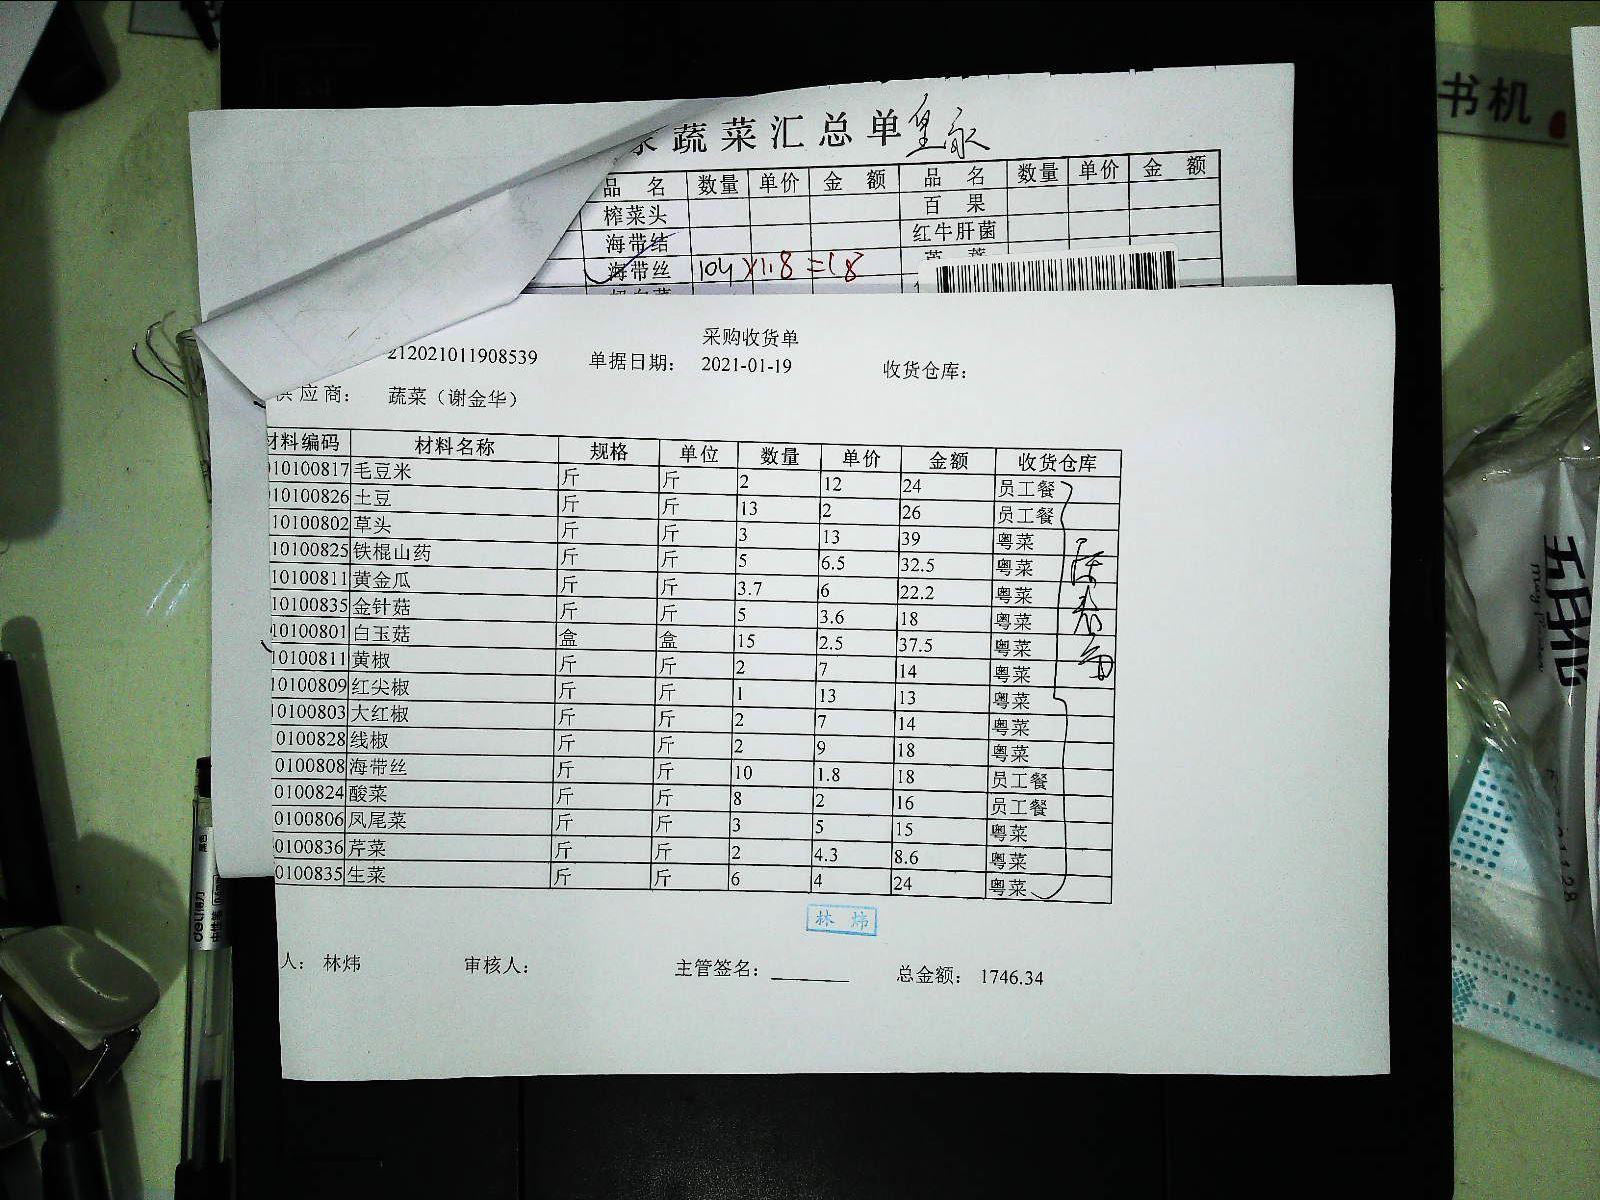 蔬菜汇总单
品 名 数量 单价 金 额 品 名 数量 单价 金 额
榨菜头 百 果
海带结 红牛肝菌
海带丝 10斤 ×1.8 =18
采购收货单
212021011908539 单据日期： 2021-01-19 收货仓库：
供应商： 蔬菜（谢金华）
材料编码 材料名称 规格 单位 数量 单价 金额 收货仓库
10100817 毛豆米 斤 斤 2 12 24 员工餐
10100826 土豆 斤 斤 13 2 26 员工餐
10100802 草头 斤 斤 3 13 39 粤菜
10100825 铁棍山药 斤 斤 5 6.5 32.5 粤菜
10100811 黄金瓜 斤 斤 3.7 6 22.2 粤菜
10100835 金针菇 斤 斤 5 3.6 18 粤菜
10100801 白玉菇 盒 盒 15 2.5 37.5 粤菜
10100811 黄椒 斤 斤 2 7 14 粤菜
10100809 红尖椒 斤 斤 1 13 13 粤菜
10100803 大红椒 斤 斤 2 7 14 粤菜
0100828 线椒 斤 斤 2 9 18 粤菜
0100808 海带丝 斤 斤 10 1.8 18 员工餐
0100824 酸菜 斤 斤 8 2 16 员工餐
0100806 凤尾菜 斤 斤 3 5 15 粤菜
0100836 芹菜 斤 斤 2 4.3 8.6 粤菜
0100835 生菜 斤 斤 6 4 24 粤菜
林 炜
人： 林炜 审核人： 主管签名： 总金额： 1746.34
书机
deli得力